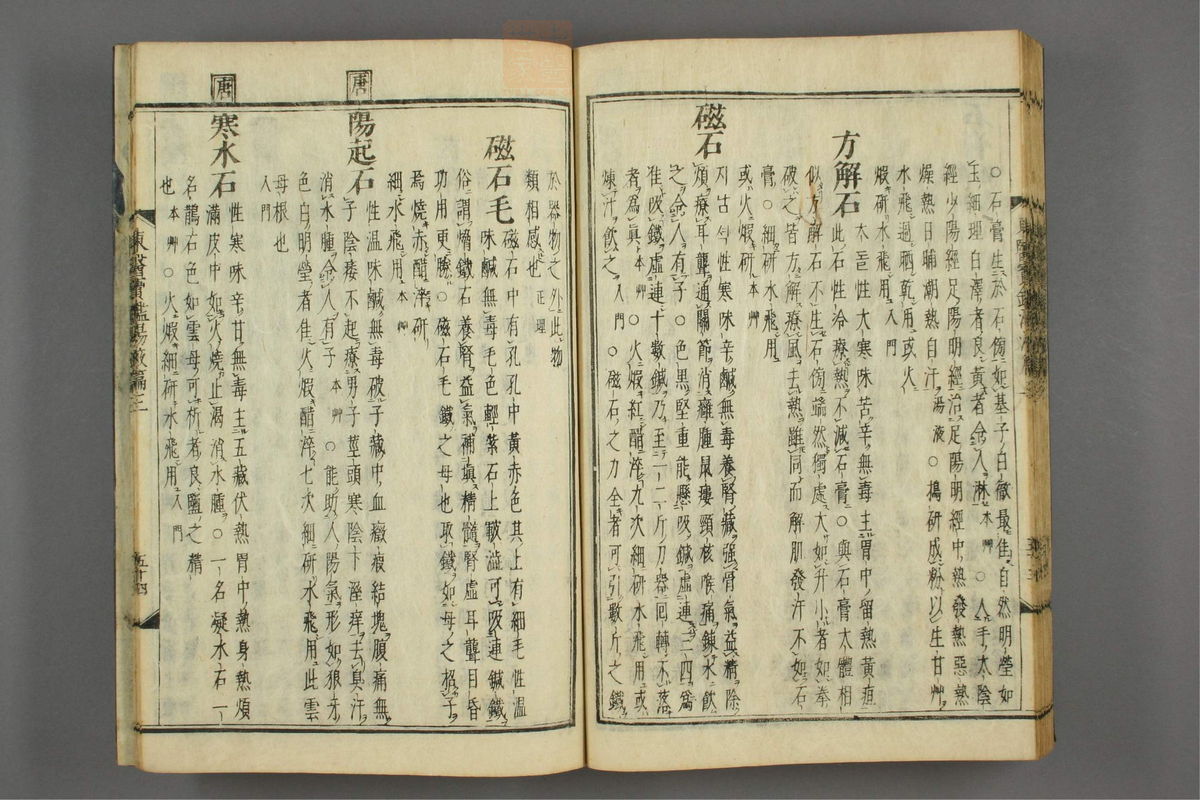 ○石膏生於石傍如棊子白徹最佳自然明瑩如
玉細理白澤者良黃者令人淋本艸○入手太陰
經少陽經足陽明經治足陽明經中熱發熱惡熱
燥熱日晡潮熱自汗湯液○搗研成粉以生甘艸
水飛過晒乾用或火
煆研水飛用入門
方解石
此石性冶療熱不減石膏○與石膏大體相
似方解石不生石傍端然獨處大如升小者如拳
破之皆方解療風去熱雖同而解肌發汗不如石
膏○細研水飛用
或火煆研本艸
磁石
지남셕性寒味辛鹹無毒養腎藏強骨氣益精除
煩療耳聾通關節消癰腫鼠瘻頸核喉痛鍊水飮
之令人有子○色黑堅重能懸吸鍼虛連三四爲
佳吸鐵虛連十數鍼乃至一二斤刀器回轉不落
者爲眞本艸○火煆紅醋淬九次細研水飛用或
煉汁飮之入門○磁石之力全者可引數斤之鐵
於器物之外此物
類相感也正理
磁石毛
味鹹無毒毛色輕紫石上皸澁可吸連鍼鐵
俗謂熁鐵石養腎益氣補塡精髓腎虛耳聾目昏
功用更勝○磁石毛鐵之母也取鐵如母之招子
焉燒赤醋淬研
細水飛用本艸
唐 陽起石
性溫味鹹無毒破子藏中血癥瘕結塊腹痛無
子陰痿不起療男子莖頭寒陰下溼痒去臭汗
消水腫令人有子本艸○能助人陽氣形如狼牙
色白明瑩者佳火煆醋淬七次細研水飛用此雲
母根也
入門
唐 寒水石
性寒味辛甘無毒主五藏伏熱胃中熱身熱煩
滿皮中如火燒止渴消水腫○一名凝水石一
名鵲石色如雲母可析者良鹽之精
也本艸○火煆細研水飛用入門
東醫寶鑑湯液篇三
五十四